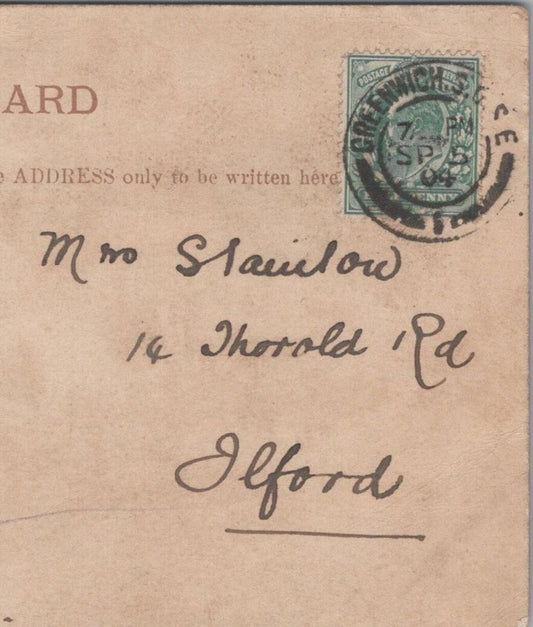 ARD
ADDRESS only to be written here
POSTAGE
GREENWICH. S.O. S.E
7 PM
SP 5
04
PENNY
Mrs Stainlow
14 Thorold Rd
Ilford